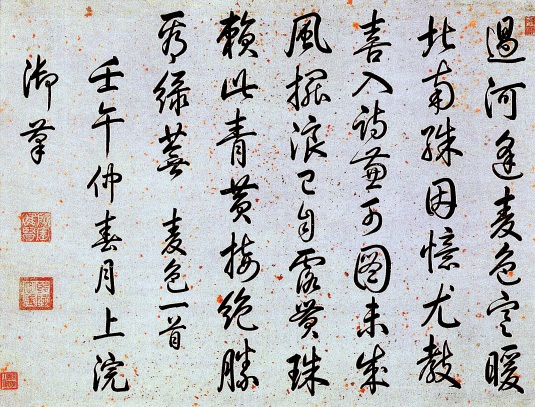 過河逢麥色寒暖
北南殊因憶尤教
喜入詩兼可圖未成
風擺浪已自露珠
賴此青黃接絕勝
看綠蕪 麥色一首
壬午仲春月上浣
御筆